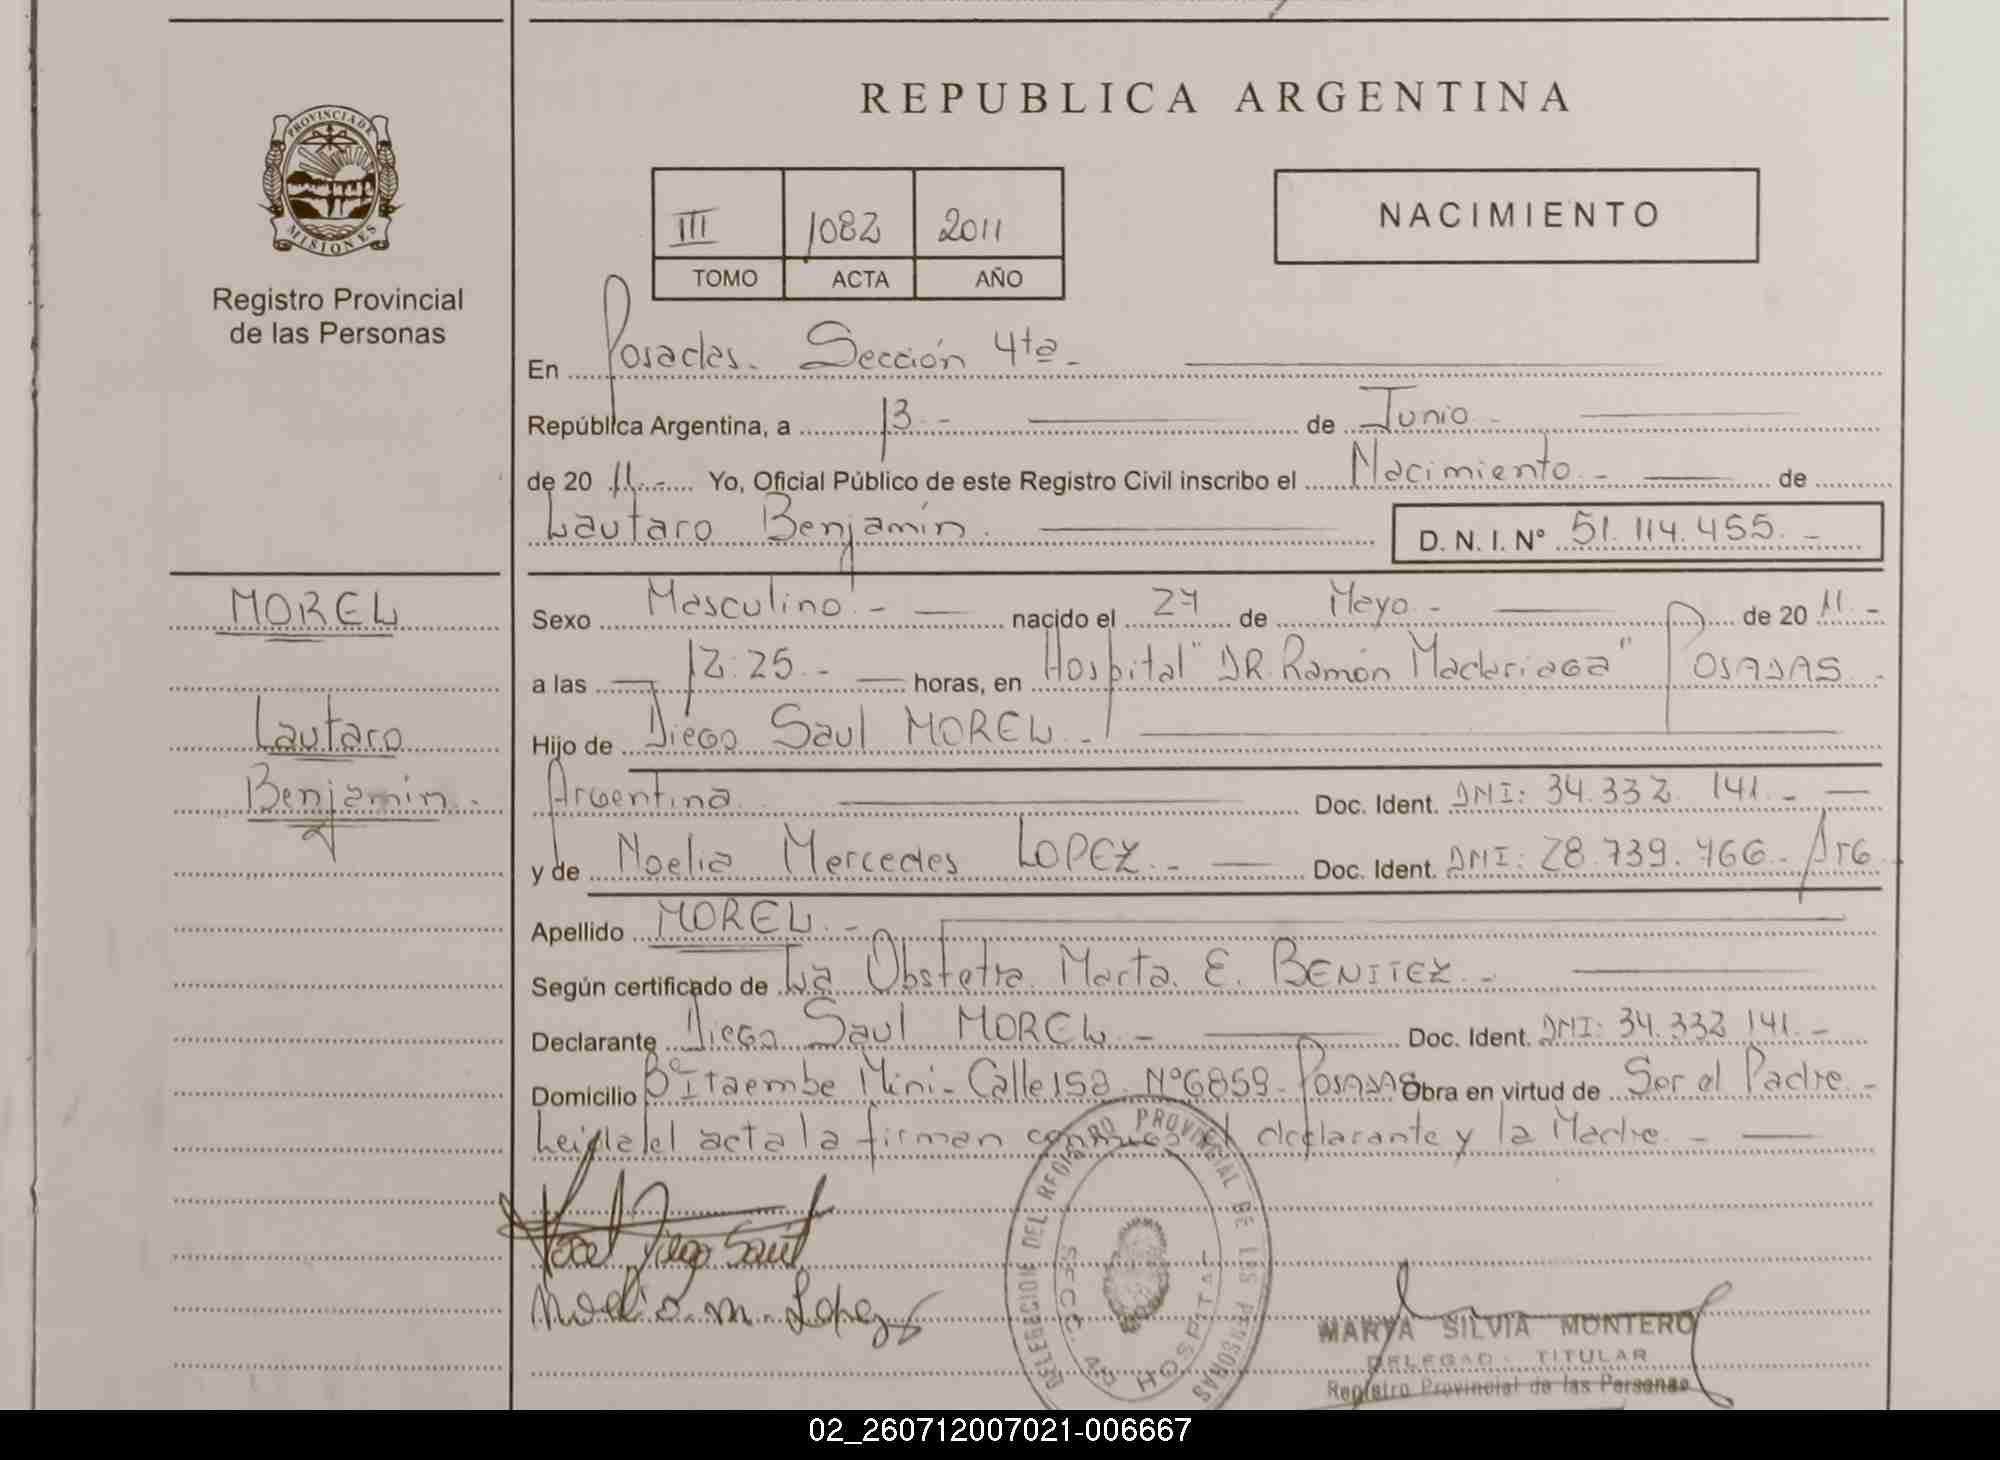 REPUBLICA ARGENTINA
PROVINCIA DE
MISIONES
Registro Provincial
de las Personas
III 1082 2011
TOMO ACTA AÑO
NACIMIENTO
En Posadas. Sección 4ta -
República Argentina, a 13 - de Junio -
de 20 11.- Yo, Oficial Público de este Registro Civil inscribo el Nacimiento - de
Lautaro Benjamín. D. N. I. Nº 51.114.455. -
MOREL
Lautaro
Benjamín.
Sexo Masculino - nacido el 27 de Mayo - de 20 11. -
a las 12:25. - horas, en Hospital "DR. Ramón Madariaga" POSADAS. -
Hijo de Diego Saul MOREL. -
Argentina. Doc. Ident. DNI: 34.332.141. -
y de Noelia Mercedes LOPEZ. - Doc. Ident. DNI: 28.739.766. Arg
Apellido MOREL. -
Según certificado de La Obstetra. Marta. E. BENITEZ. -
Declarante Diego Saul MOREL. - Doc. Ident. DNI: 34.332.141. -
Domicilio Bº Itaembe Mini - Calle 158. Nº 6859. POSADAS Obra en virtud de Ser el Padre. -
Leida el acta la firman conmigo el declarante y la Madre. -
Diego Saul
Noelia. m. Lopez
DELEGACION DEL REGISTRO PROVINCIAL DE LAS PERSONAS
SECC. HOSPITAL
SILVIA MONTERO
TITULAR
Registro Provincial de las Personas
02_260712007021-006667